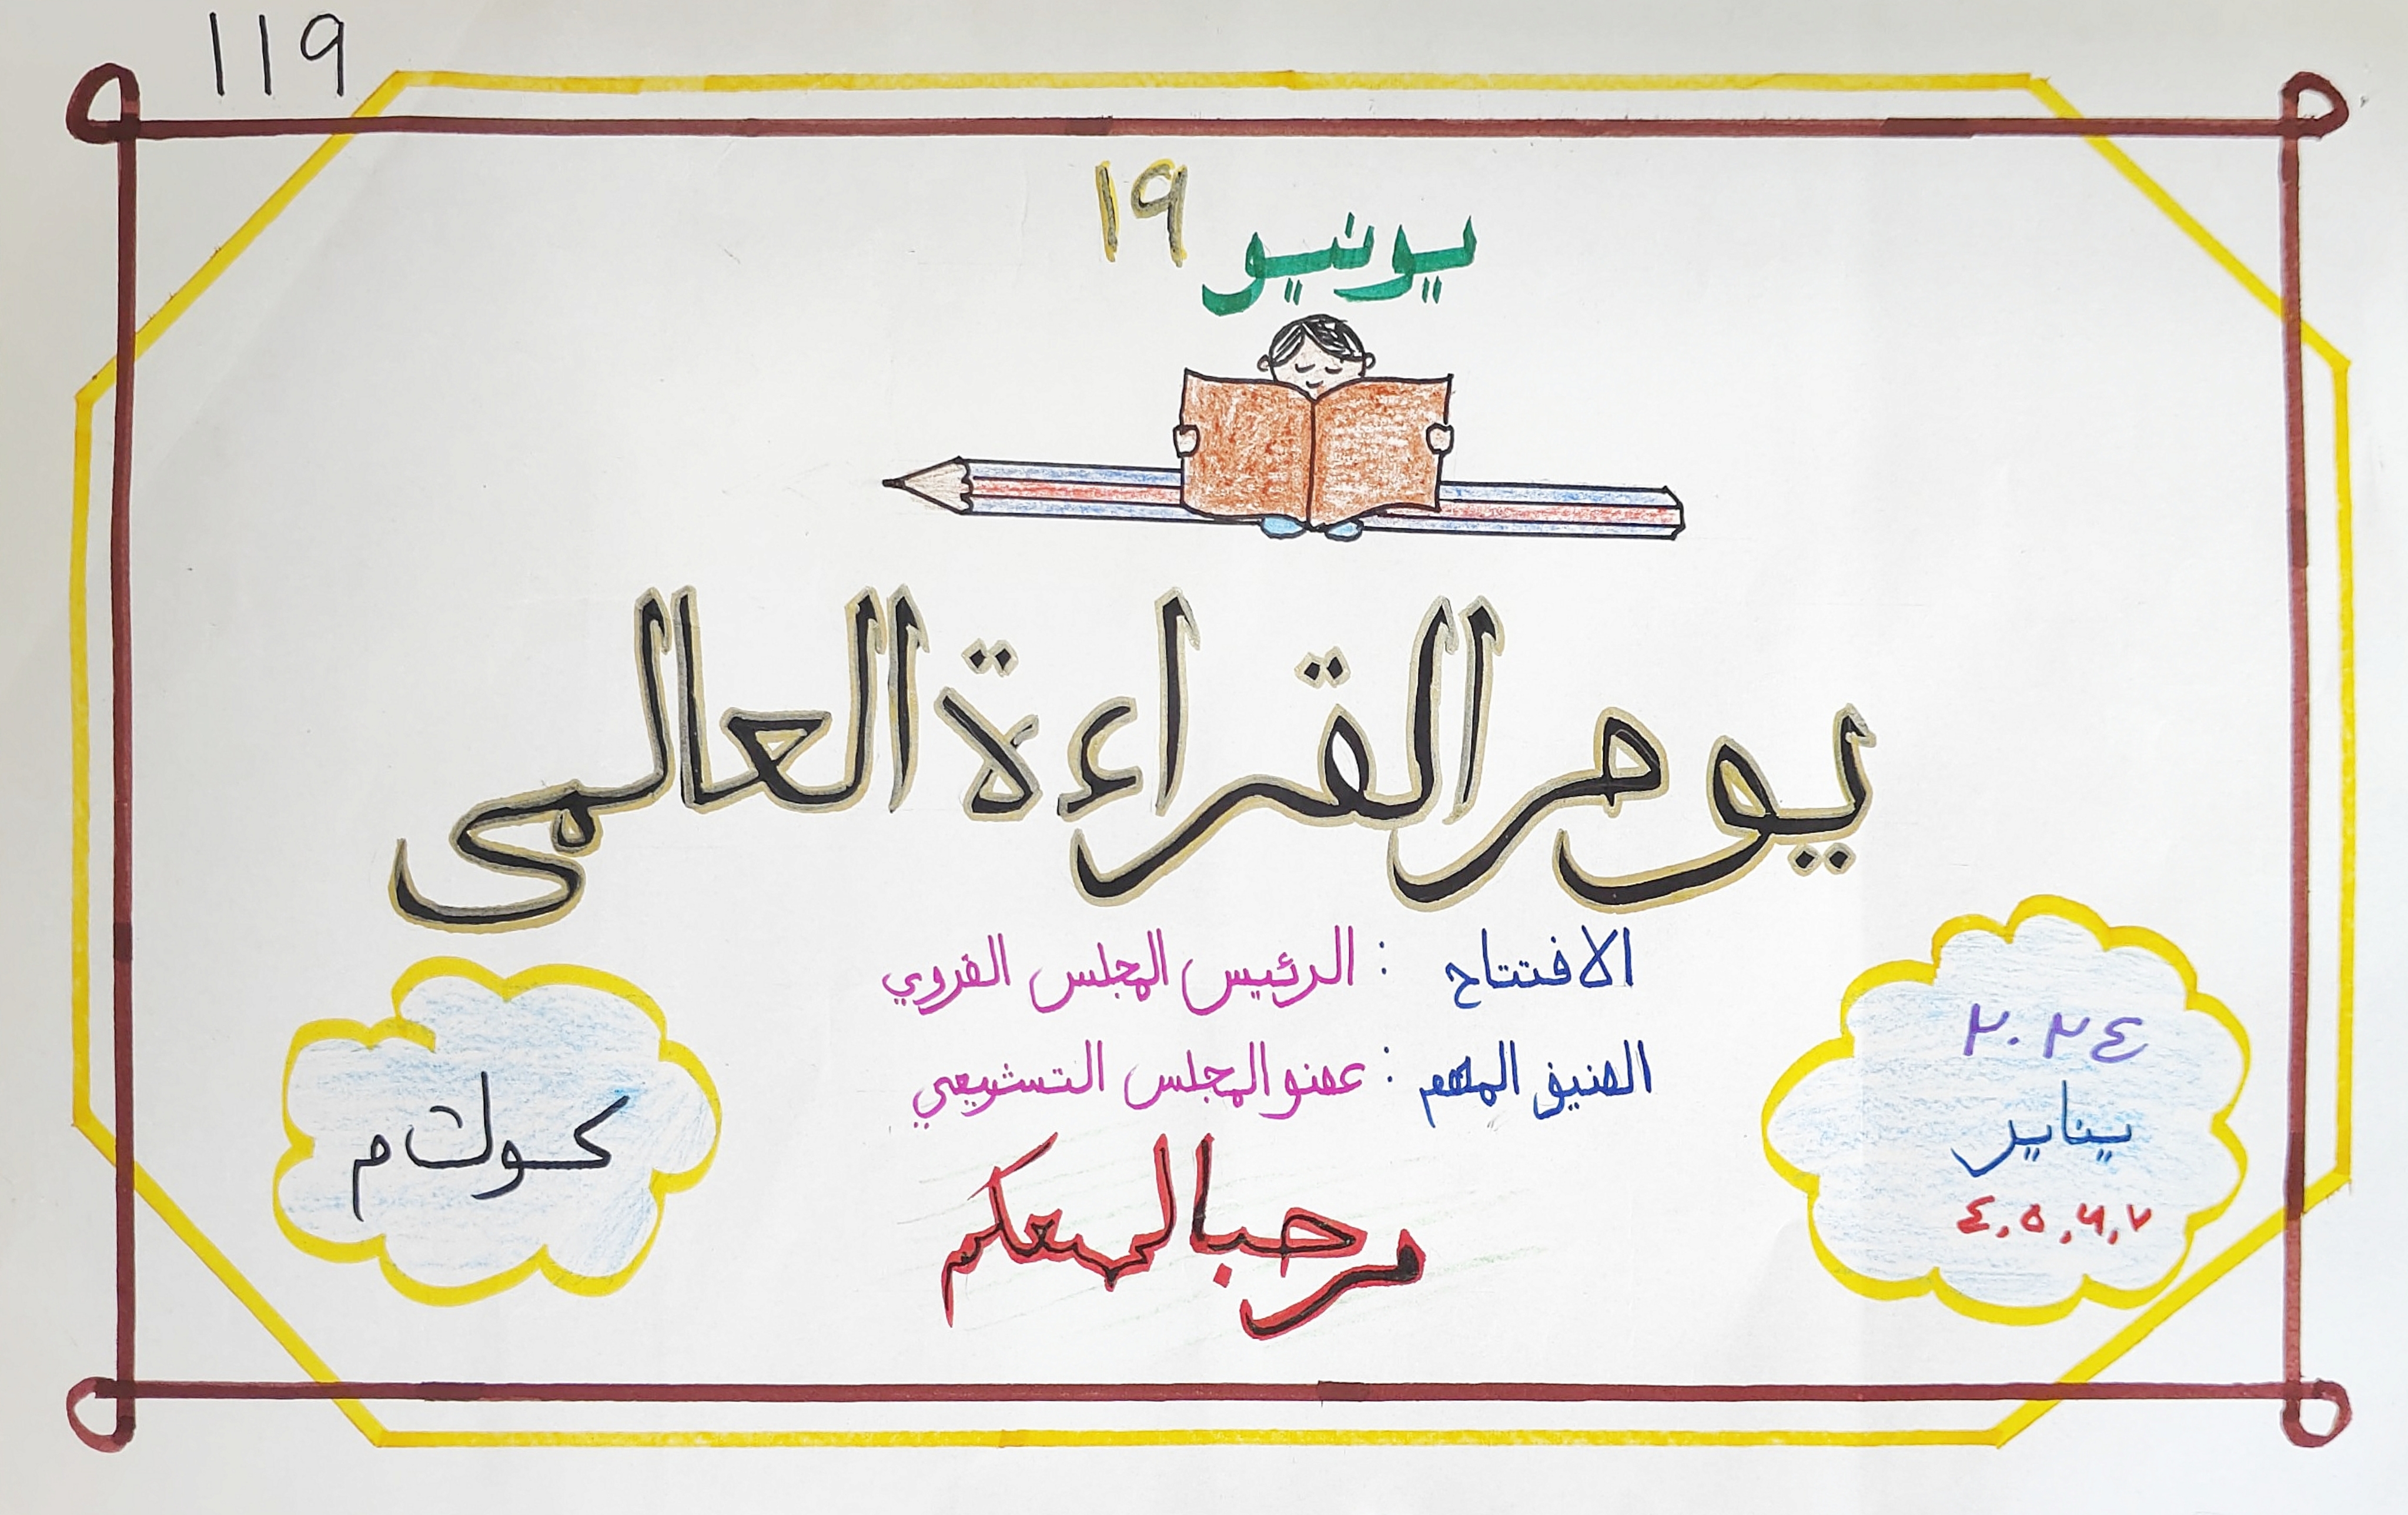 ١١٩
يونيو ١٩
يوم القراءة العالمى
الافتتاح : الرئيس المجلس القروي
الضيف المهم : عضو المجلس التشريعي
٢٠٢٤
يناير
٤،٥،٦،٧
مرحبا